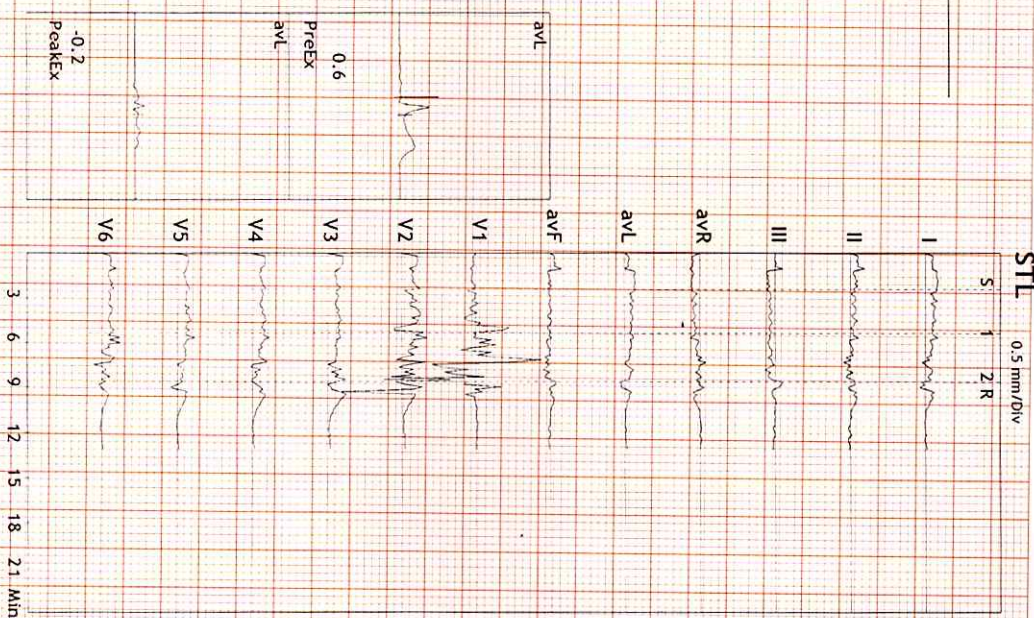 STL 0.5 mm/Div
S 1 2 R
I
II
III
avR
avL
avF
V1
V2
V3
V4
V5
V6
3 6 9 12 15 18 21 Min
avL
0.6
PreEx
avL
-0.2
PeakEx